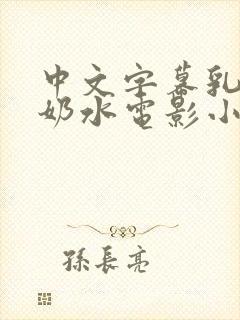 中文字幕乳
奶水电影小
孫長亮